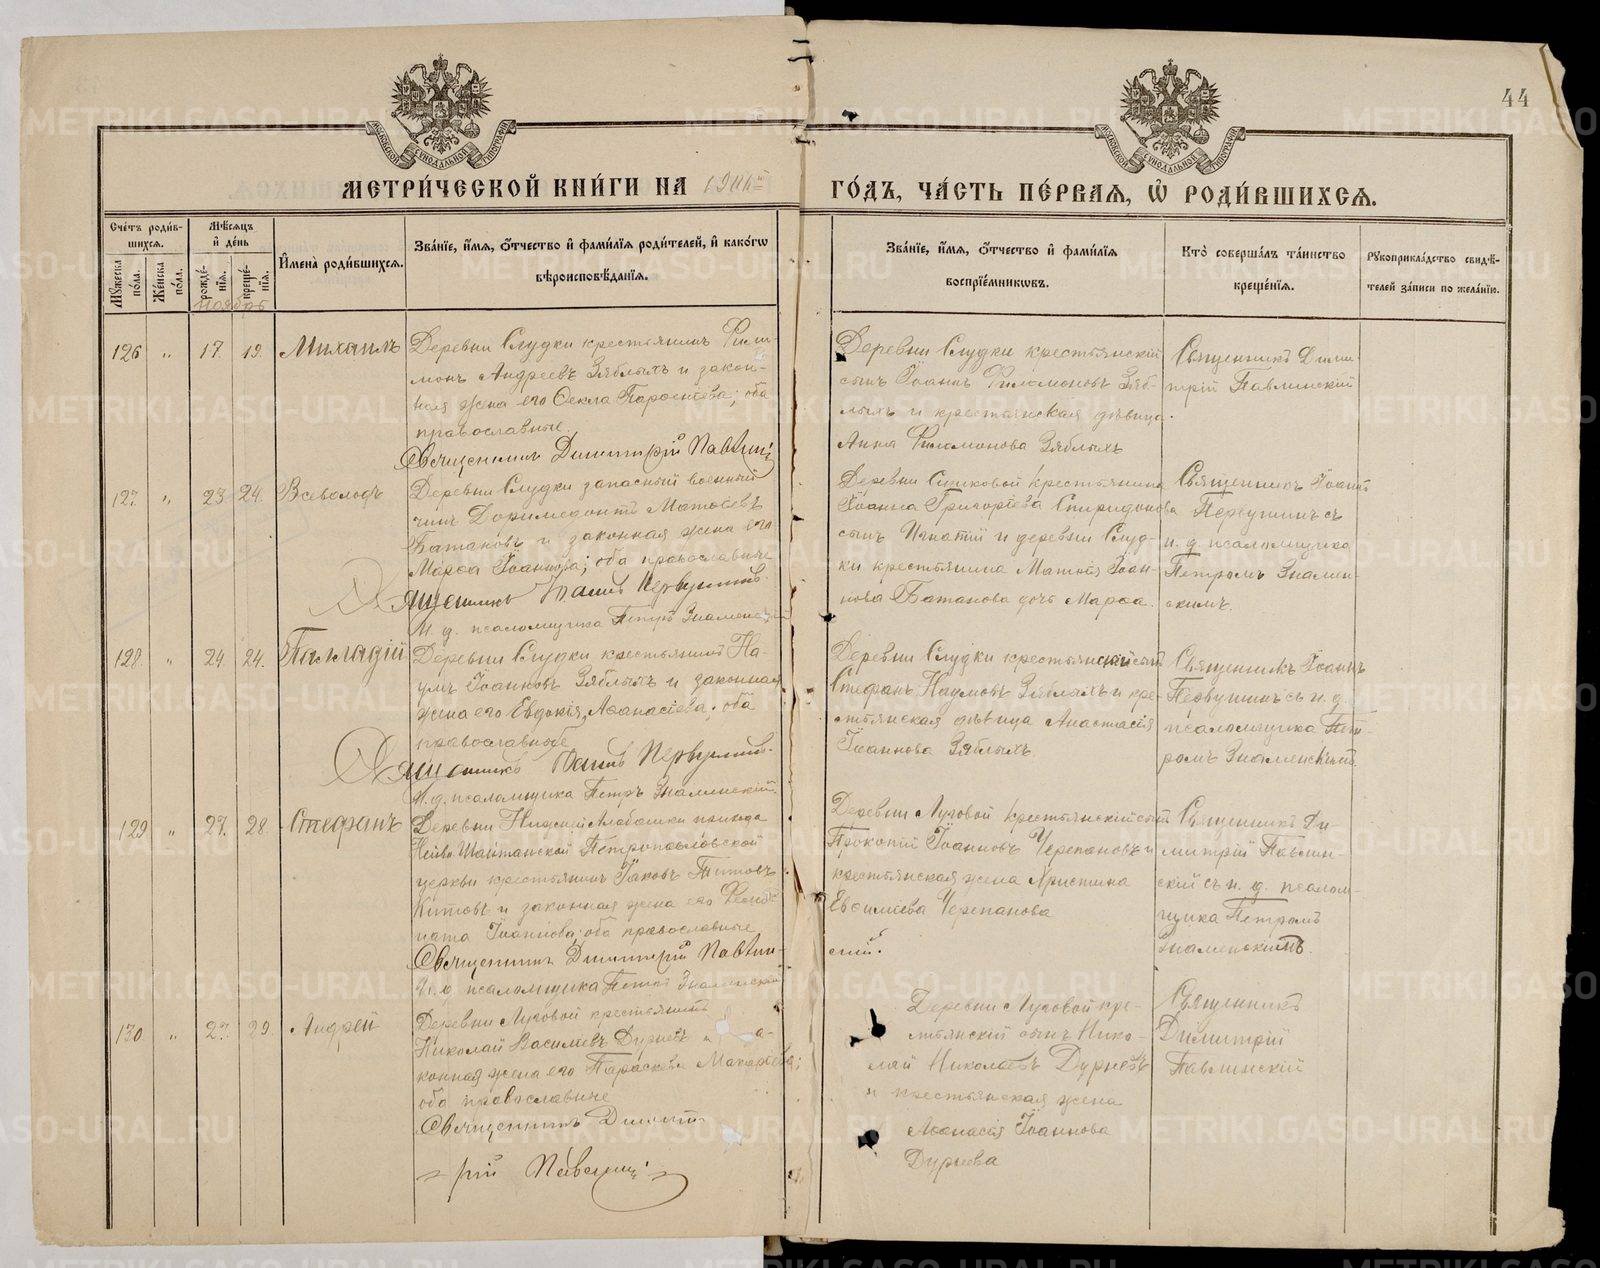 44
МОСКОВСКОЙ СУНОДАЛЬНОЙ ТИПОГРАФІИ
МОСКОВСКОЙ СУНОДАЛЬНОЙ ТИПОГРАФІИ
МЕТРИ́ЧЕСКОЙ КНИ́ГИ НА
ГО́ДЪ, ЧА́СТЬ ПЕ́РВАЯ, Ѡ҆ РОДИ́ВШИХСЯ.
Сче́тъ роди́в-
шихся.
Мꙋжеска по́ла.
Же́нска по́ла.
Мѣ́сяцъ
и҆ де́нь
рожде́-
нїя.
креще́-
нїя.
Ноябрь
И҆мена̀ роди́вшихся.
Зва́нїе, и҆́мя, ѻ҆́тчество и҆ фами́лїя роди́телей, и҆ како́гѡ
вѣроисповѣ́данїя.
Зва́нїе, и҆́мя, ѻ҆́тчество и҆ фами́лїя
воспрїе́мникѡвъ.
Кто̀ соверша́лъ та́инство
креще́нїя.
Рꙋкоприкла́дство свидѣ́-
телей за́писи по жела́нїю.
126 " 17. 19. Михаилъ
Деревни Слудки крестьянинъ Фили-
монъ Андреевъ Зяблыхъ и закон-
ная жена его Ѳекла ; оба
православные.
Священникъ Димитрій Павлин
Деревни Слудки крестьянскій
сынъ Іоаннъ Филимоновъ Зяб-
лыхъ и крестьянская дѣвица
Анна Филимонова Зяблыхъ
Священникъ Дими-
трій Павлинскій
127. " 23 24. Всеволодъ
Деревни Слудки запасный военный
чинъ Доримедонтъ Матѳеевъ
Батановъ и законная жена его
Марѳа Іоаннова; оба православные
Священникъ Іоаннъ Первушинъ.
И. д. псаломщика Петръ Знаменс
Деревни крестьянина
Іоанна Григоріева Спиридонова
сынъ Игнатій и деревни Слуд-
ки крестьянина Матѳея Іоан-
нова Батанова дочь Марѳа.
Священникъ Іоаннъ
Первушинъ съ
и. д. псаломщика
Петромъ Знамен-
скимъ.
128. " 24. 24. Палладій
Деревни Слудки крестьянинъ На-
умъ Іоанновъ Зяблыхъ и законная
жена его Евдокія Аѳанасіева; оба
православные
Священникъ Іоаннъ Первушинъ.
И. д. псаломщика Петръ Знаменскій.
Деревни Слудки крестьянскій сынъ
Стефанъ Наумовъ Зяблыхъ и кре-
стьянская дѣвица Анастасія
Іоаннова Зяблыхъ
Священникъ Іоаннъ
Первушинъ съ и. д.
псаломщика Пет-
ромъ Знаменскимъ.
129 " 27. 28. Стефанъ
Деревни Нижней Алабашки прихода
Нейво Шайтанской Петропавловской
церкви крестьянинъ Іаковъ Титовъ
Китовъ и законная жена его
Іоаннова; оба православные
Священникъ Димитрій Павлин-
И. д. псаломщика Петръ Знаменскій
Деревни Луговой крестьянскій сынъ
Прокопій Іоанновъ Черепановъ и
крестьянская жена Христина
Евѳиміева Черепанова
скій.
Священникъ Ди-
митрій Павлин-
скій съ и. д. псалом-
щика Петромъ
Знаменскимъ.
130 " 27. 29. Андрей
Деревни Луговой крестьянинъ
Николай Василіевъ Дурневъ и за-
конная жена его Параскева Макаріева;
оба православные
Священникъ Димит-
рій Павлин
Деревни Луговой кре-
стьянскій сынъ Нико-
лай Николаевъ Дурневъ
и крестьянская жена
Аѳанасія Іоаннова
Дурнева
Священникъ
Димитрій
Павлинскій
METRIKI.GASO-URAL.RU